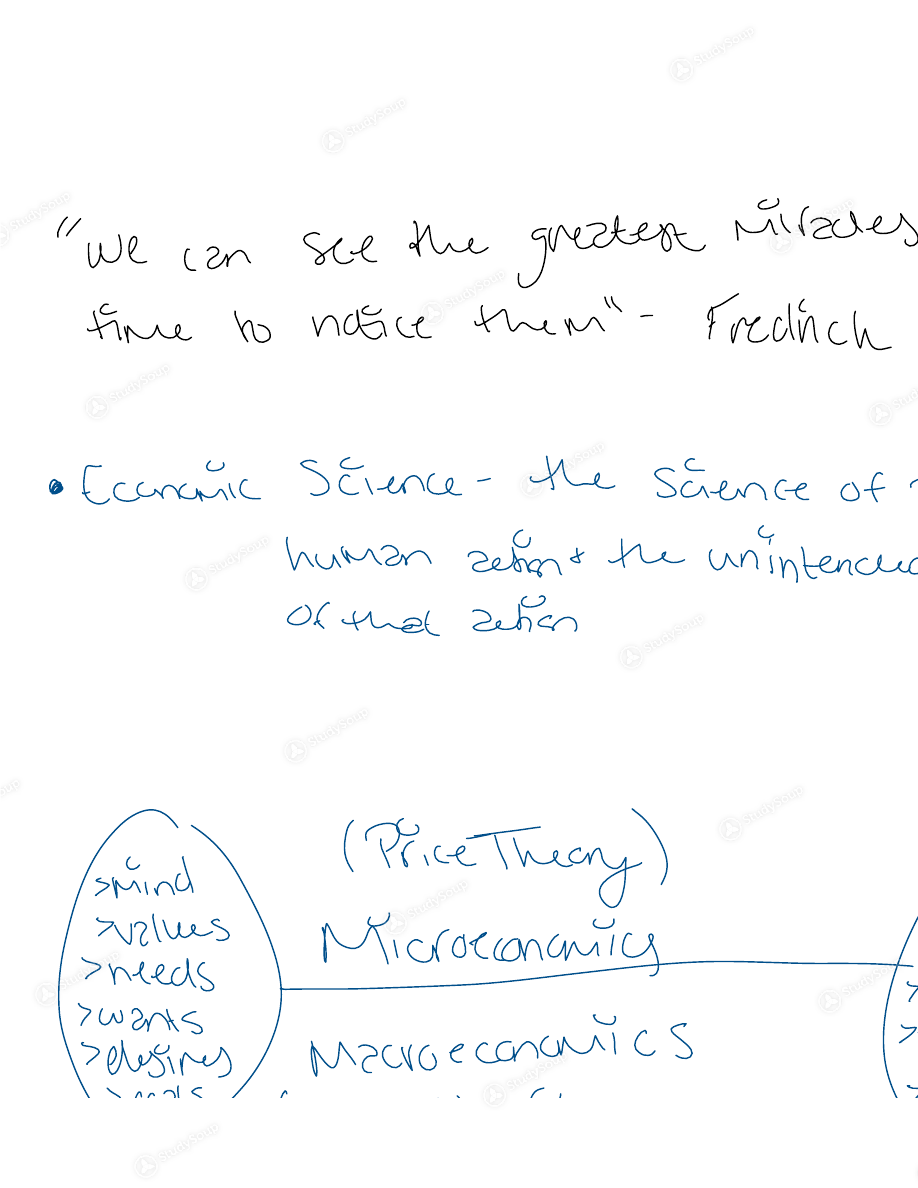 "We can see the greatest miracles
time to notice them" - Fredrich
• Economic Science - the science of
human action & the unintended
of that action
(Price Theory)
>mind
>values
Microeconomics
>needs
>wants
>desires
Macroeconomics
StudySoup